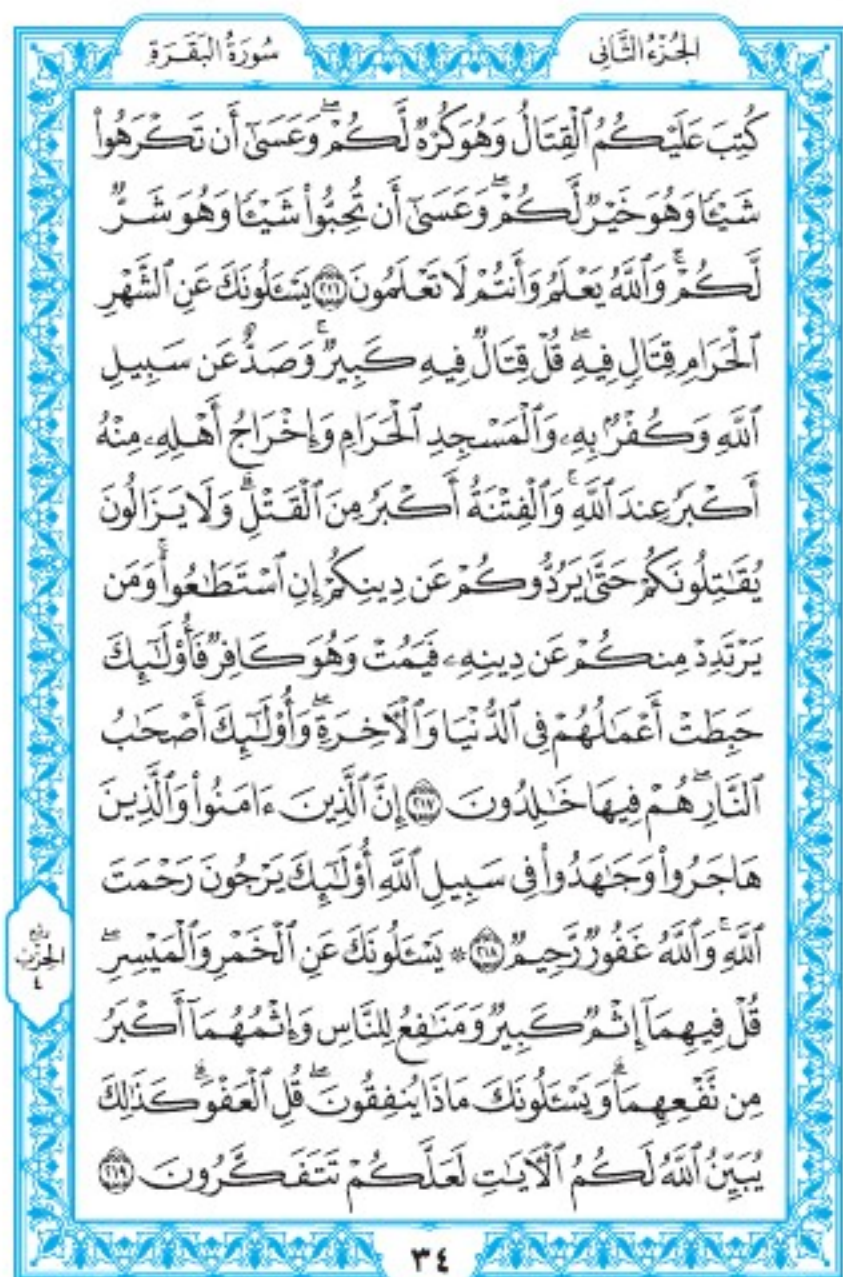 الجُزْءُ الثَّانِى
سُورَةُ البَقَرَةِ
كُتِبَ عَلَيْكُمُ ٱلْقِتَالُ وَهُوَ كُرْهٌ لَّكُمْ ۖ وَعَسَىٰٓ أَن تَكْرَهُوا۟
شَيْـًٔا وَهُوَ خَيْرٌ لَّكُمْ ۖ وَعَسَىٰٓ أَن تُحِبُّوا۟ شَيْـًٔا وَهُوَ شَرٌّ
لَّكُمْ ۗ وَٱللَّهُ يَعْلَمُ وَأَنتُمْ لَا تَعْلَمُونَ ٢١٦ يَسْـَٔلُونَكَ عَنِ ٱلشَّهْرِ
ٱلْحَرَامِ قِتَالٍ فِيهِ ۖ قُلْ قِتَالٌ فِيهِ كَبِيرٌ ۖ وَصَدٌّ عَن سَبِيلِ
ٱللَّهِ وَكُفْرٌۢ بِهِۦ وَٱلْمَسْجِدِ ٱلْحَرَامِ وَإِخْرَاجُ أَهْلِهِۦ مِنْهُ
أَكْبَرُ عِندَ ٱللَّهِ ۚ وَٱلْفِتْنَةُ أَكْبَرُ مِنَ ٱلْقَتْلِ ۗ وَلَا يَزَالُونَ
يُقَـٰتِلُونَكُمْ حَتَّىٰ يَرُدُّوكُمْ عَن دِينِكُمْ إِنِ ٱسْتَطَـٰعُوا۟ ۚ وَمَن
يَرْتَدِدْ مِنكُمْ عَن دِينِهِۦ فَيَمُتْ وَهُوَ كَافِرٌ فَأُو۟لَـٰٓئِكَ
حَبِطَتْ أَعْمَـٰلُهُمْ فِى ٱلدُّنْيَا وَٱلْـَٔاخِرَةِ ۖ وَأُو۟لَـٰٓئِكَ أَصْحَـٰبُ
ٱلنَّارِ ۖ هُمْ فِيهَا خَـٰلِدُونَ ٢١٧ إِنَّ ٱلَّذِينَ ءَامَنُوا۟ وَٱلَّذِينَ
هَاجَرُوا۟ وَجَـٰهَدُوا۟ فِى سَبِيلِ ٱللَّهِ أُو۟لَـٰٓئِكَ يَرْجُونَ رَحْمَتَ
ٱللَّهِ ۚ وَٱللَّهُ غَفُورٌ رَّحِيمٌ ٢١٨ ۞ يَسْـَٔلُونَكَ عَنِ ٱلْخَمْرِ وَٱلْمَيْسِرِ ۖ
قُلْ فِيهِمَآ إِثْمٌ كَبِيرٌ وَمَنَـٰفِعُ لِلنَّاسِ وَإِثْمُهُمَآ أَكْبَرُ
مِن نَّفْعِهِمَا ۗ وَيَسْـَٔلُونَكَ مَاذَا يُنفِقُونَ ۖ قُلِ ٱلْعَفْوَ ۗ كَذَٰلِكَ
يُبَيِّنُ ٱللَّهُ لَكُمُ ٱلْـَٔايَـٰتِ لَعَلَّكُمْ تَتَفَكَّرُونَ ٢١٩
ربع
الحزب
٤
٣٤